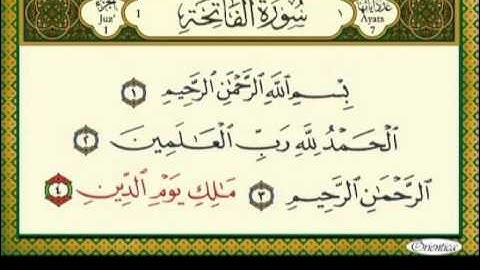 الجزء
Juz'
1
١
سُورَةُ الْفَاتِحَةِ
١
عدد آياتها
Ayats
7
بِسْمِ اللَّهِ الرَّحْمَٰنِ الرَّحِيمِ ١
الْحَمْدُ لِلَّهِ رَبِّ الْعَالَمِينَ ٢
الرَّحْمَٰنِ الرَّحِيمِ ٣ مَالِكِ يَوْمِ الدِّينِ ٤
Orientica